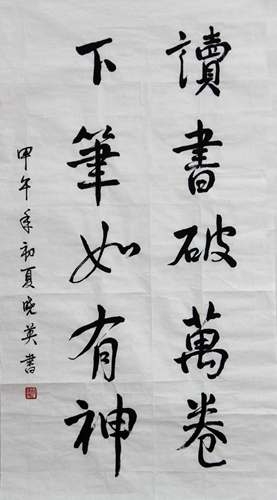 讀書破萬卷
下筆如有神
甲午年初夏晓英書